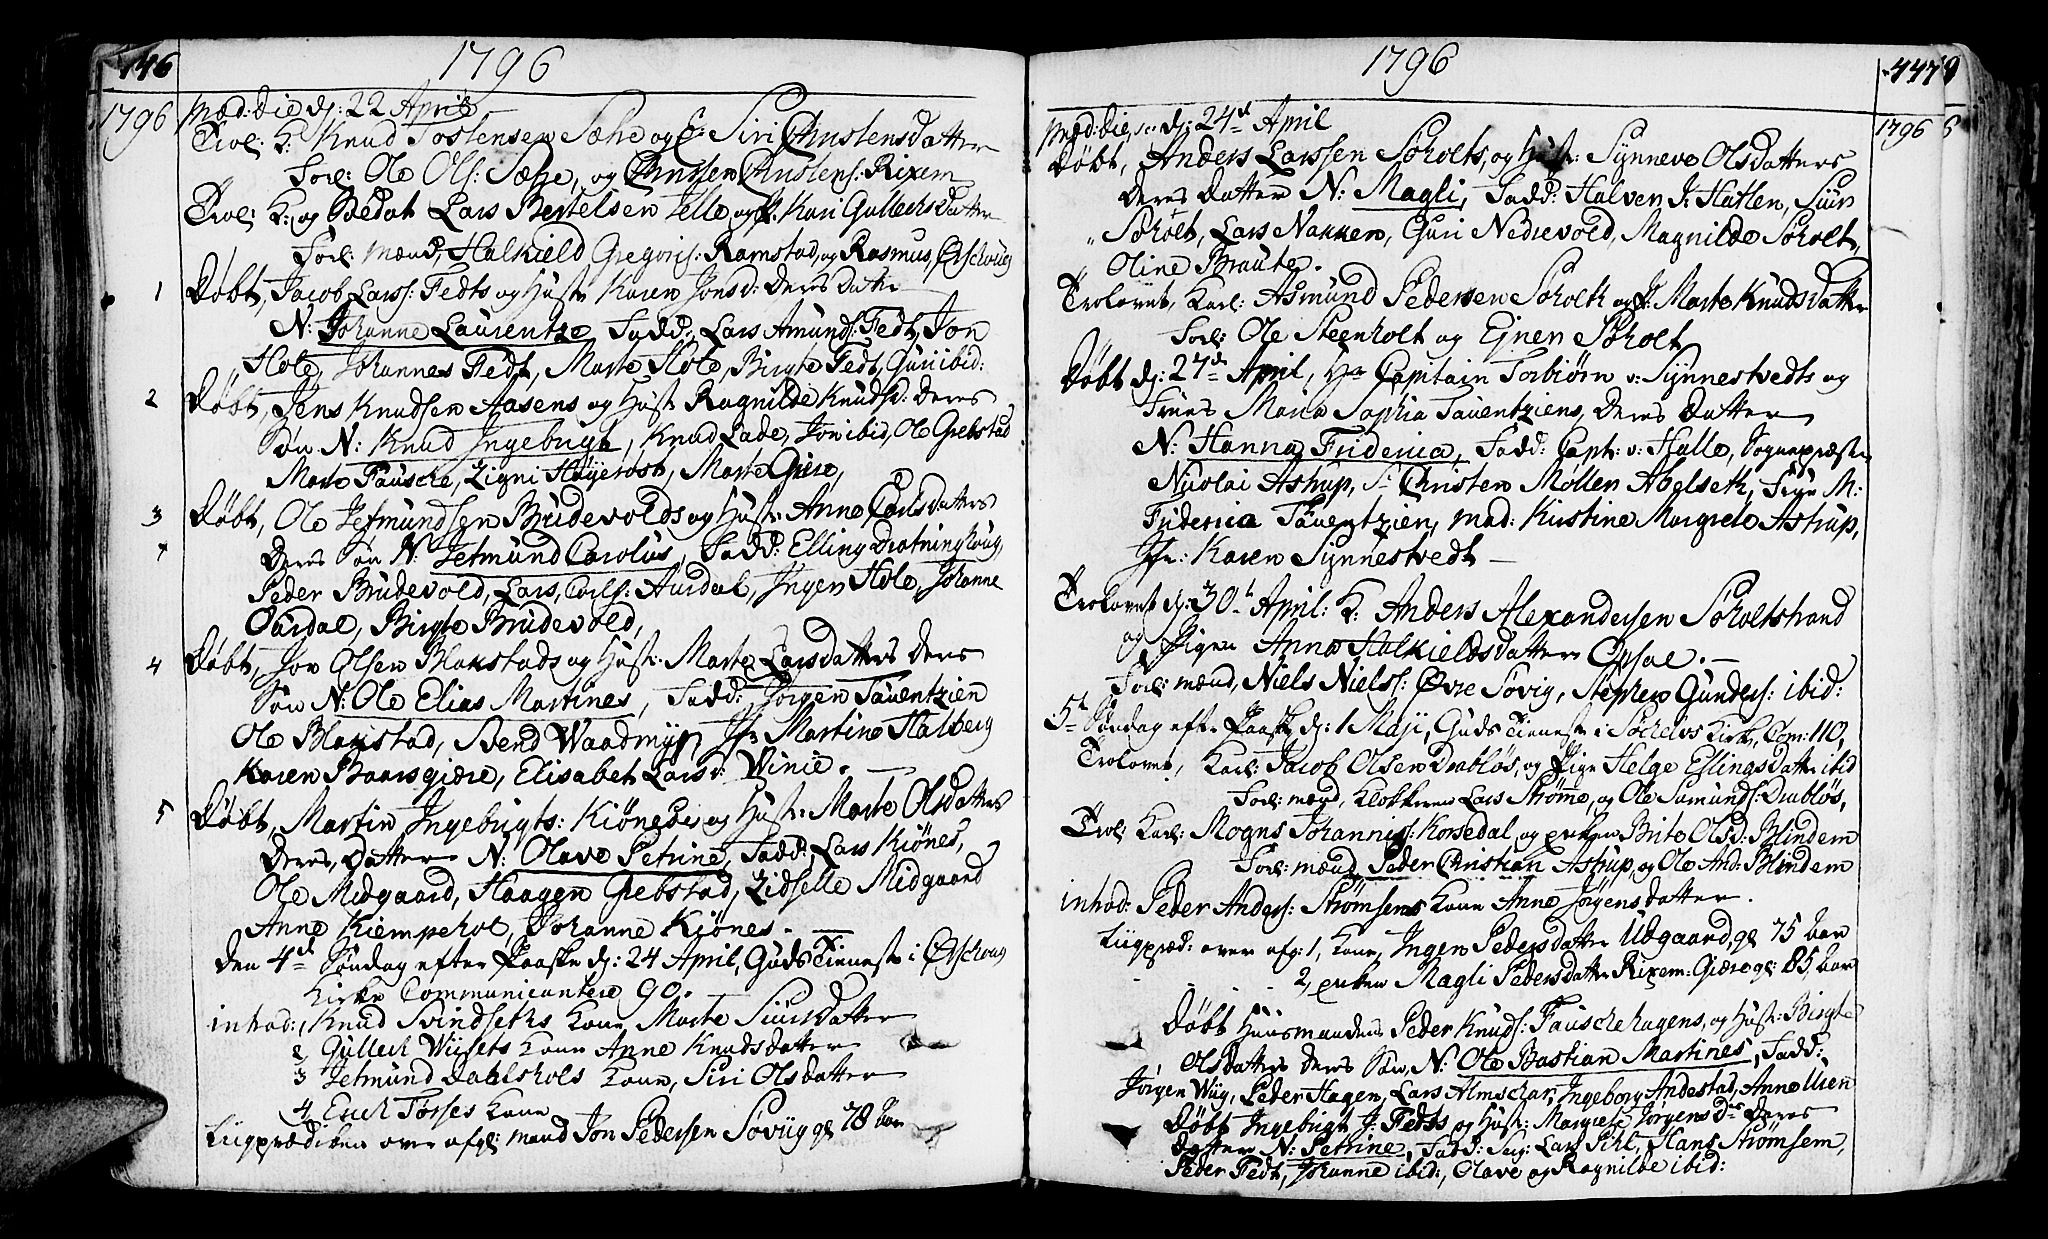 446
1796
1796
Mæd: die d: 22 April
Trol: K: Knud Tostensen Sæhe og P: Siri Christensdatter
Forl: Ole Ols: Sæhe, og Christen Christens: Rixem
Trol: K: og Sedat Lars Bertelsen Selle og P: Kari Gullechsdatter
Forl: mænd, Halkield Gregoris: Ramstad, og Rasmus Erschoug
1 Døbt, Jacob Larss: Fedts og Hustr Karen Jonsd: deres Datter
N: Johanne Laurentze, Fadd: Lars Amunds: Fedt, Jon
Hole, Johannes Fedt, Marte Hole, Birgte Fedt, Guri ibid:
2 Døbt, Jens Knudsen Aasens og Hustr Ragnilde Knudsd: deres
Søn N: Knud Ingebrigt, Knud Lade, Jon ibid, Ole Grebstad
Marte Fausche, Zigni Høyerøst, Marte Giere,
3 Døbt, Ole Jetmundsen Brudevolds og Hustr: Anne Carlsdatters
deres Søn N: Jetmund Carolus, Fadd: Elling Drotninghoug,
Peder Brudevold, Lars Carls: Aurdal, Ingen Hole, Johanne
Ourdal, Birgte Brudevold,
4 Døbt, Jon Olsen Blakstads og Hustr: Marte Larsdatters deres
Søn N: Ole Elias Martines, Fadd: Jørgen Tauentzien
Ole Blakstad, Bend Waadmyr, Jfr Martine Halberg
Karen Baarsgiære, Elisabet Larsd: Winie.
5 Døbt, Martin Ingebrigts: Kiønes og Hustr: Marte Olsdatters
deres Datter N: Olave Petrine, Fadd: Lars Kiønes,
Ole Midgaard, Haagen Grebstad, Zidselle Midgaard
Anne Kiempehol, Johanne Kiønes.
Den 4de Søndag efter Paaske d: 24 April, Guds Tieneste i Erschoug
Kirke Communicantere 90.
introd: 1, Knud Svindseths Kone Marte Siursdatter
2 Gullech Wiisets Kone Anne Knudsdatter
3 Jetmund Dahlshols Kone, Siri Olsdatter
4 Erich Tørses Kone
Liigprædiken over afg: mand Jon Pedersen Søviig gl 78 Aar
447
1796
1796
Mæd: die d: 24de April
Døbt, Anders Larssen Søholts, og Hustr: Synneve Olsdatters
deres datter N: Magli, Fadd: Halven J: Hatlen, Siur
Søholt, Lars Nakken, Guri Nedrevold, Magnilde Søholt,
Oline Braute.
Trolovet, Karl: Asmund Pedersen Søholt og P: Marte Knudsdatter
Forl: Ole Steenholt og Ejner Søholt
Døbt d: 27de April, Hr Capitain Torbiørn v: Synnestvedts og
Frues Maria Sophia Tauentziens, deres datter
N: Hanna Friderica, Fadd: Capt: v: Halle, Sognepræst
Nicolai Astrup, Sr Christen Møller Abelseth, Frue M:
Friderica Tauentzien, Mad: Kirstine Margrete Astrup,
Jfr: Karen Synnestvedt
Trolovet d: 30te April: K: Anders Alexandersen Søholtstrand
og Pigen Anna Halkieldsdatter Opsal.
Forl: mænd, Niels Niels: Øvre Søvig, Stephen Gunders: ibid:
5te Søndag eft: Paaske d: 1 Maji, Guds Tieneste i Søchelvs Kirke, Com: 110,
Trolovet, Karl: Jacob Olsen Drabløs, og Pige Helge Ellingsdatter ibid
Forl: mænd, Klokkeren Lars Strømme, og Ole Samunds: Drabløs,
Trol: Karl: Mogns Johanniss: Korsedal, og enken Brite Olsd: Blindem
Forl: mænd, Peder Christian Astrup, og Ole And: Blindem
introd: Peder Anders: Strømsems Kone Anne Jørgensdatter.
Liigpræd: over afg: 1, Kone, Ingen Pedersdatter Udgaard, gl 75 Aar
2, enken Magli Pedersdatter Rixem: Giære gl: 85, Aar
Døbt Huusmanden Peder Knuds: Fauschehagens, og Hustr: Birgte
Olsdatters deres Søn, N: Ole Bastian Martines, Fadd:
Jørgen Wiig, Peder Hagen, Lars Almschar, Ingeborg Andestad, Anne Uren
Døbt Ingebrigt J: Fedts og Hustr: Margrete Jørgensdr deres
datter N: Petrine, Fadd: Serg: Lars Pihl, Hans Strømsem,
Peder Fedt, Johanne ibid:, Olave og Ragnilde ibid: